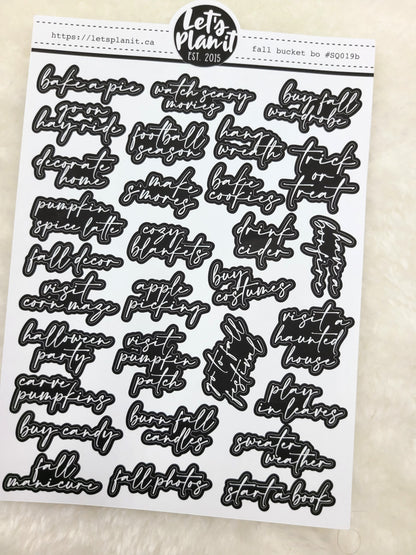 Let's
Plan it
EST. 2015
https://letsplanit.ca
fall bucket bo #SQ019b
bake a pie
watch scary
movies
buy fall
wardrobe
go on
hayride
football
season
hang
wreath
trick
or
treat
decorate
home
make
s'mores
bake
cookies
pumpkin
spice latte
cozy
blankets
drink
cider
have a
bonfire
fall decor
buy
costumes
visit
corn maze
apple
picking
visit a
haunted
house
halloween
party
visit
pumpkin
patch
go to fall
festival
carve
pumpkins
play
in leaves
buy candy
burn fall
candles
sweater
weather
fall
manicure
fall photos
start a book